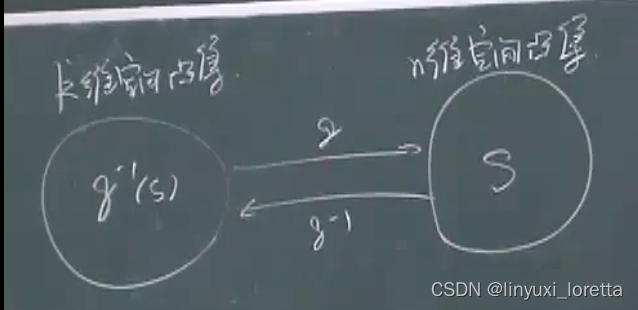 k维空间凸集
n维空间凸集
g
g⁻¹(S)
S
g⁻¹
CSDN @linyuxi_loretta